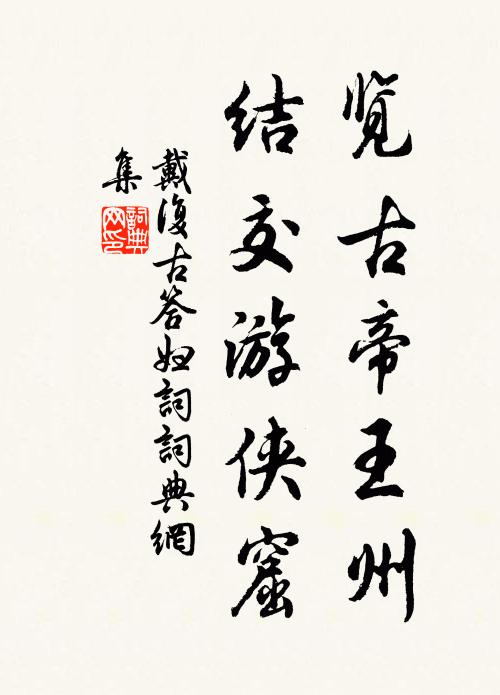 览古帝王州
结交游侠窟
戴復古答妇詞詞典網
集
詞典
网印